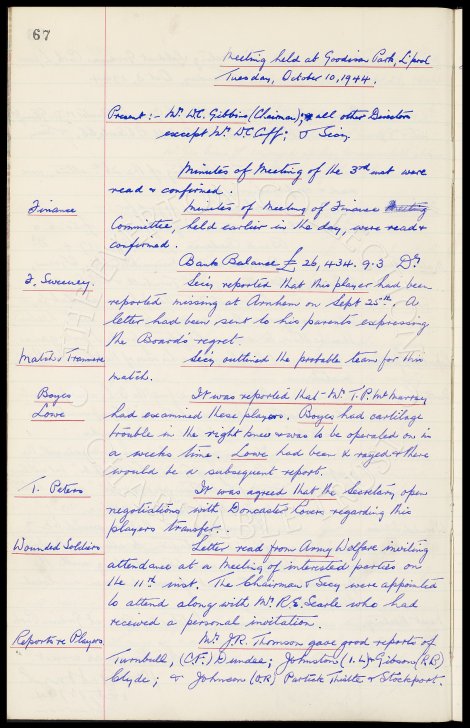 67
Meeting held at Goodison Park, L'pool
Tuesday, October 10, 1944.
Present:- Mr. W.C. Gibbins (Chairman); all other Directors
except Mr. W.C. Cuff; & Secy.
Minutes of Meeting of the 3rd inst were
read & confirmed.
Finance
Minutes of Meeting of Finance Meeting
Committee, held earlier in the day, were read &
confirmed.
Bank Balance £ 26,434. 9. 3 Dr.
J. Sweeney.
Secy reported that this player had been
reported missing at Arnhem on Sept 25th. A
letter had been sent to his parents expressing
the Board's regret.
Match v Tranmere
Secy outlined the probable team for this
match.
Boyes
Lowe
It was reported that Mr. T.P. McMurray
had examined these players. Boyes had cartilage
trouble in the right knee & was to be operated on in
a weeks time. Lowe had been X rayed & there
would be a subsequent report.
T. Peters
It was agreed that the Secretary open
negotiations with Doncaster Rovers regarding this
players transfer.
Wounded Soldiers
Letter read from Army Welfare inviting
attendance at a Meeting of interested parties on
the 11th inst. The Chairman & Secy were appointed
to attend along with Mr. R.E. Searle who had
received a personal invitation.
Reports re Players
Mr. J.R. Thomson gave good reports of
Turnbull, (C.F.) Dundee; Johnston (I.L) & Gibson (R.B)
Clyde; & Johnson (O.R) Partick Thistle & Stockport.